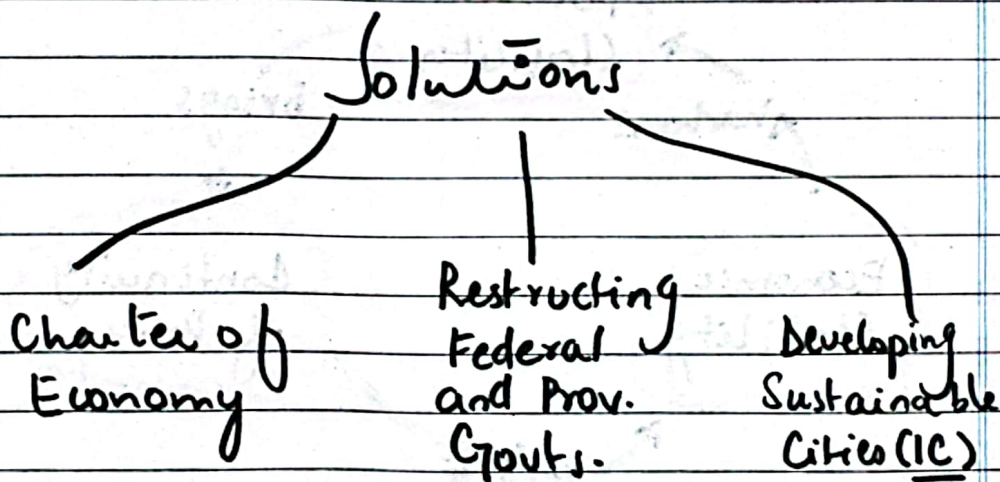 Solutions
Charter of
Economy
Restructing
Federal
and Prov.
Govts.
Developing
Sustainable
Cities (IC)